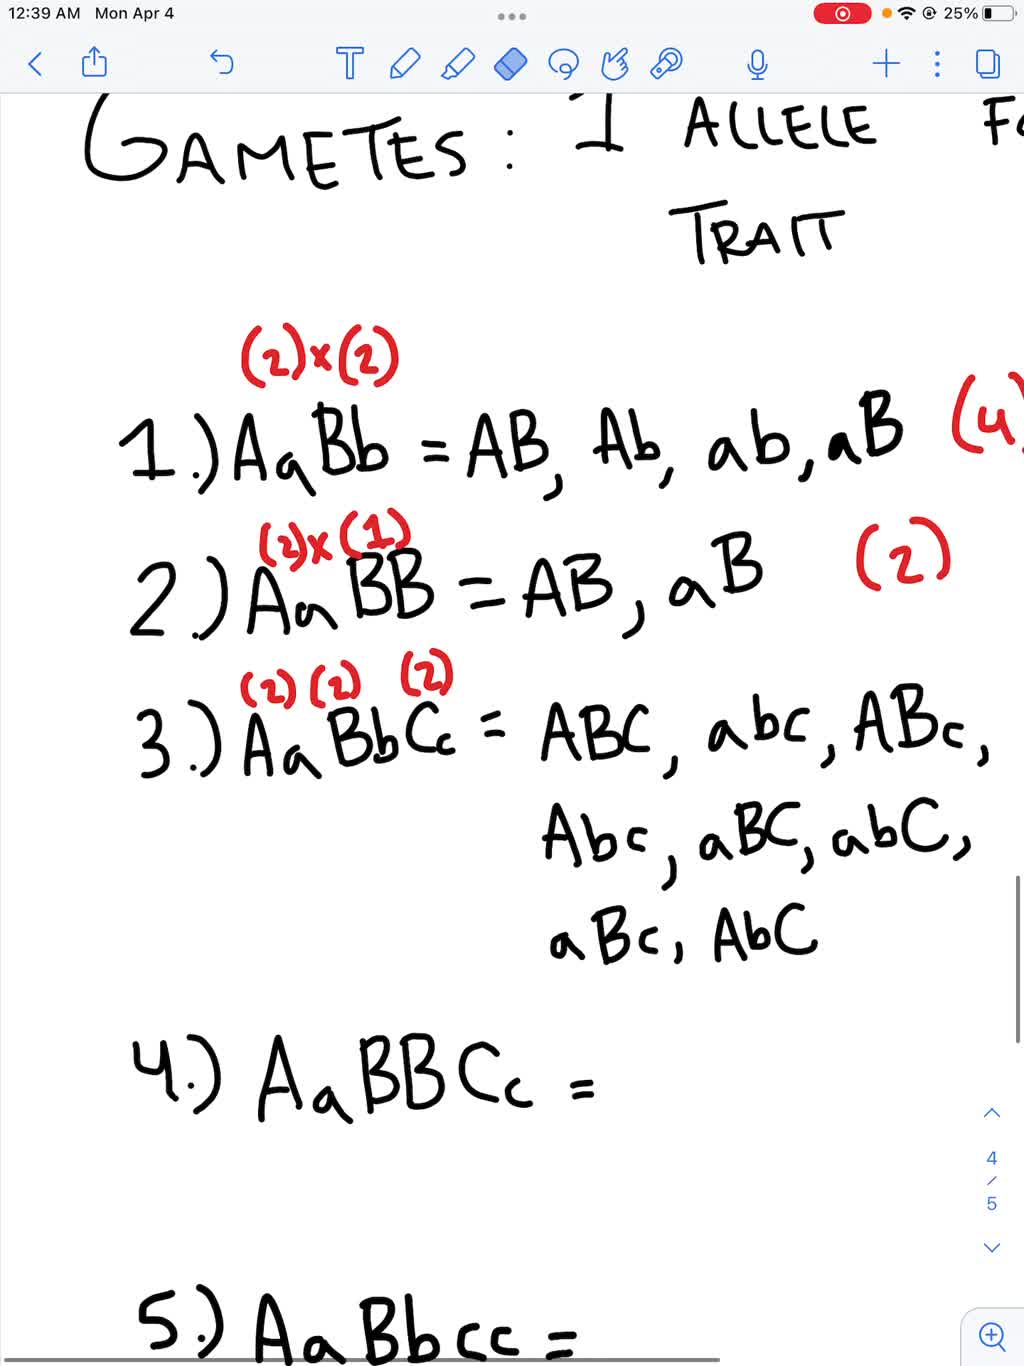 12:39 AM Mon Apr 4 25%
GAMETES: 1 ALLELE
TRAIT
(2)x(2)
1.) AaBb = AB, Ab, ab, aB (4
(2)x(1)
2.) AaBB = AB, aB (2)
(2) (2) (2)
3.) AaBbCc = ABC, abc, ABc,
Abc, aBC, abC,
aBc, AbC
4.) AaBBCc =
4
/
5
5.) AaBbcc =